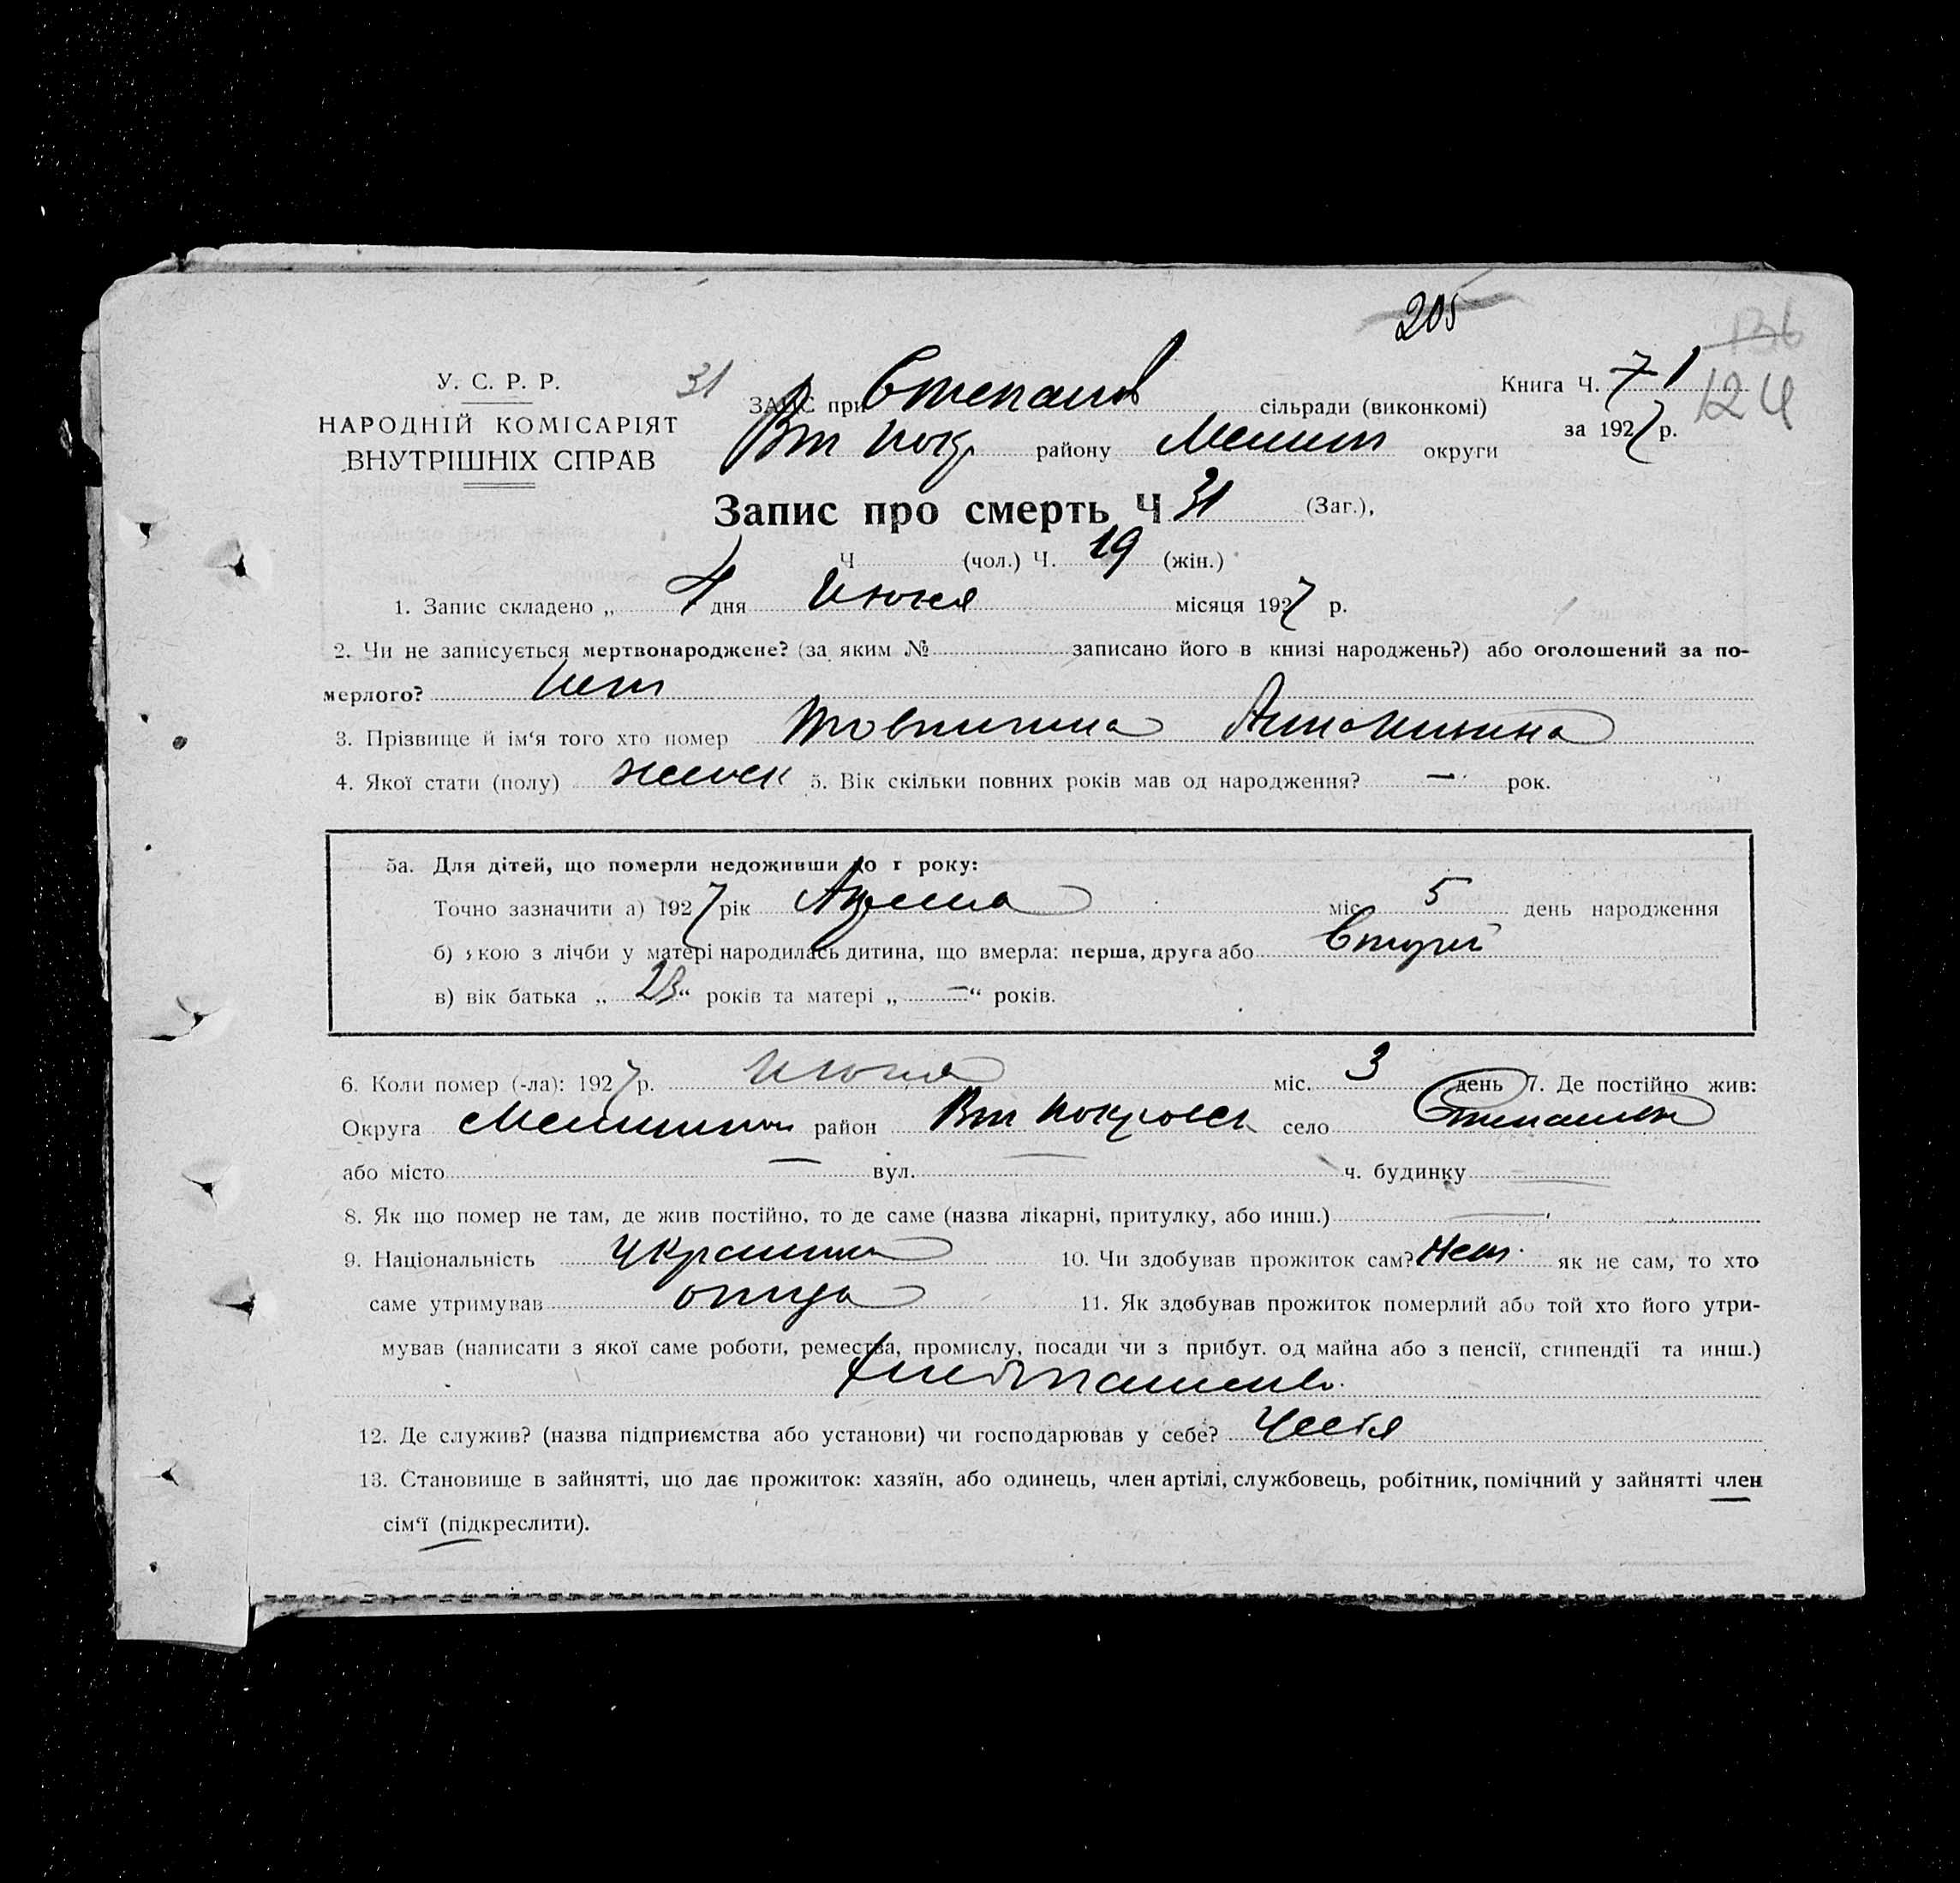 205
136
У. С. Р. Р. 31 ЗАГС при Степанов сільради (виконкомі) Книга Ч. 71 124
НАРОДНІЙ КОМІСАРІЯТ Вт Покр району Мелит округи за 1927 р.
ВНУТРІШНІХ СПРАВ
Запис про смерть Ч 31 (Заг.),
Ч (чол.) Ч. 19 (жін.)
1. Запис складено „ 4 дня Июня місяця 1927 р.
2. Чи не записується мертвонароджене? (за яким № записано його в книзі народжень?) або оголошений за по-
мерлого? Нет
3. Прізвище й ім‘я того хто помер Антонинина
4. Якої стати (полу) женск 5. Вік скільки повних років мав од народження? — рок.
5а. Для дітей, що померли недоживши до 1 року:
Точно зазначити а) 1927 рік Апреля міс. 5 день народження
б) якою з лічби у матері народилась дитина, що вмерла: перша, друга або Второй
в) вік батька „ 23 “ років та матері „ — “ років.
6. Коли помер (-ла): 1927 р. Июня міс. 3 день 7. Де постійно жив:
Округа Мелитоп район Вт Покровск село Степановк
або місто — вул. — ч. будинку —
8. Як що помер не там, де жив постійно, то де саме (назва лікарні, притулку, або инш.) —
9. Національність Украинка 10. Чи здобував прожиток сам? Нет. як не сам, то хто
саме утримував отца 11. Як здобував прожиток померлий або той хто його утри-
мував (написати з якої саме роботи, ремества, промислу, посади чи з прибут. од майна або з пенсії, стипендії та инш.)
Хлебопашество
12. Де служив? (назва підприємства або установи) чи господарював у себе? У себя
13. Становище в зайнятті, що дає прожиток: хазяїн, або одинець, член артілі, службовець, робітник, помічний у зайнятті член
сім‘ї (підкреслити).